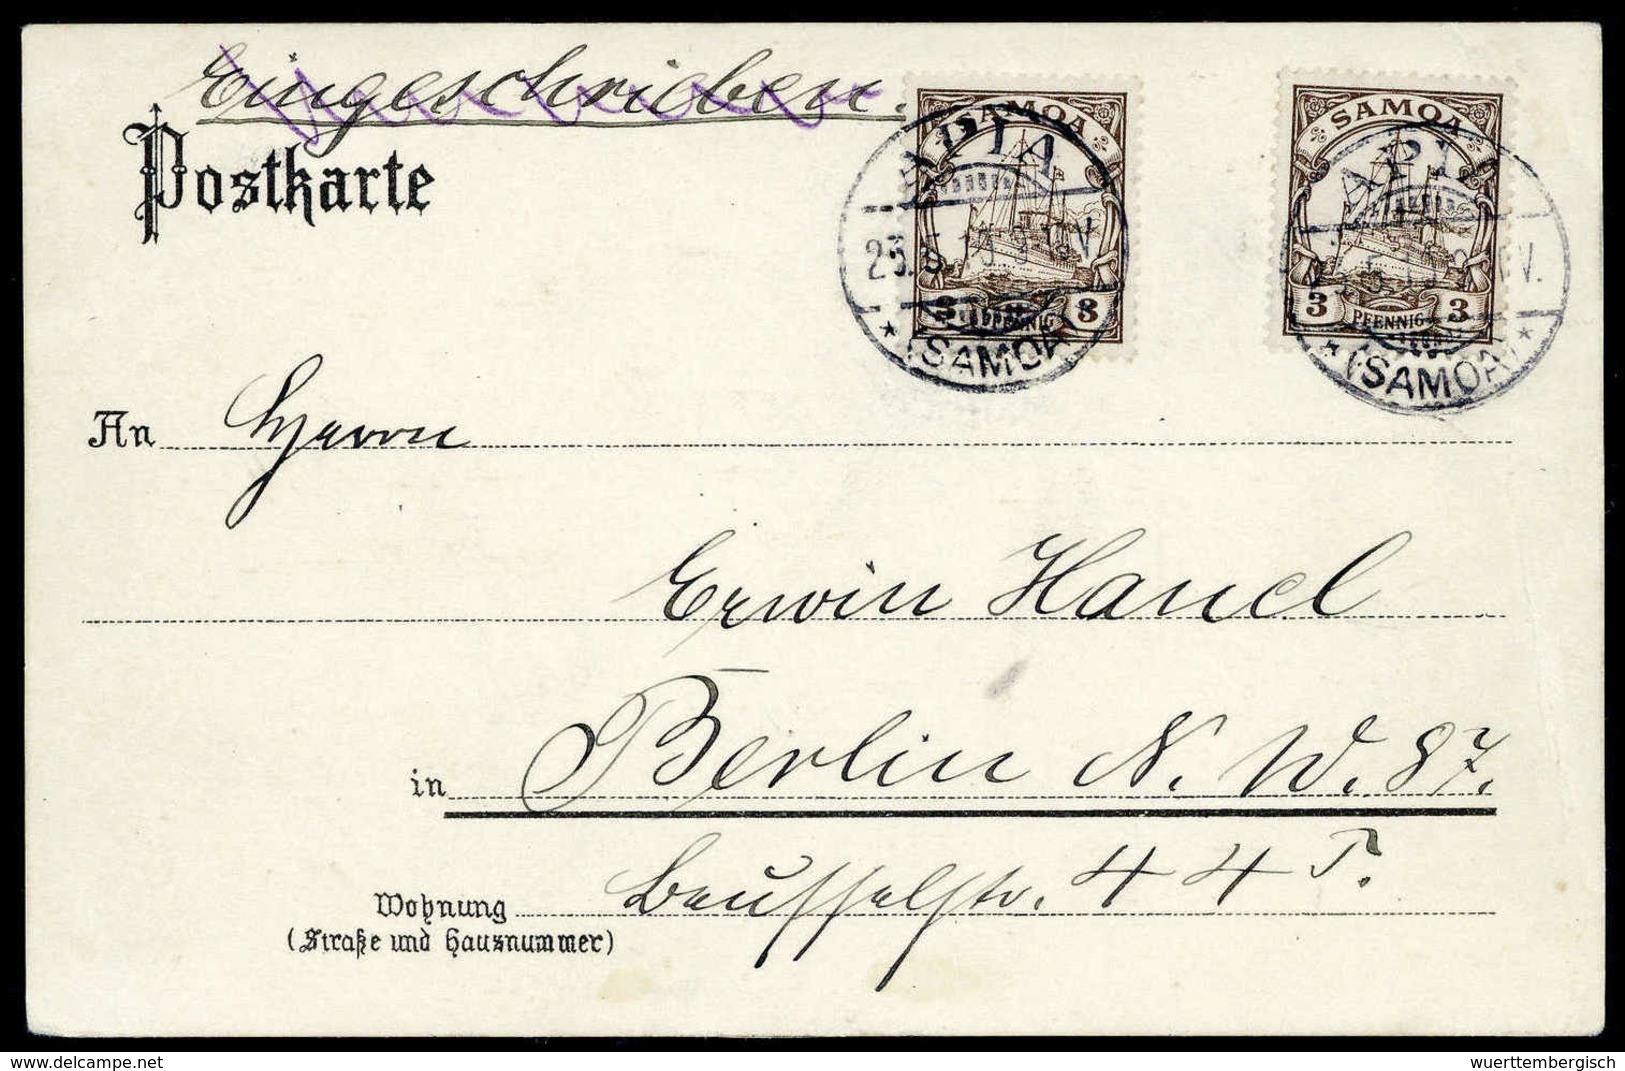 Eingeschrieben.
Postkarte
SAMOA
3 PFENNIG 3
APIA
SAMOA
SAMOA
3 PFENNIG 3
SAMOA
An Herrn
Erwin Hanel
in Berlin N. W. 87.
Wohnung Beusselstr. 44 I.
(Straße und Hausnummer)
delcampe.net
wuerttembergisch